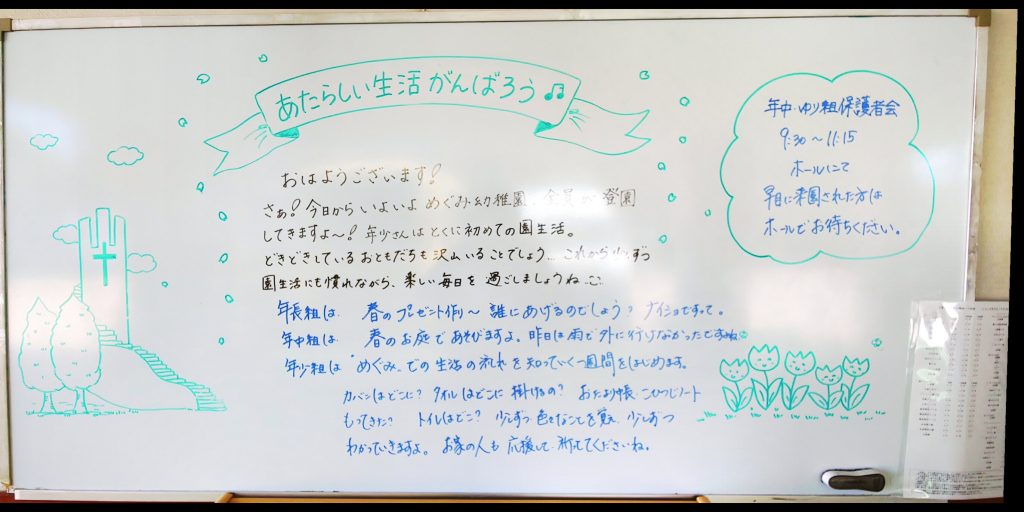 あたらしい生活がんばろう♫
おはようございます!
さぁ!今日からいよいよめぐみ幼稚園、全員が登園
してきますよ〜!年少さんはとくに初めての園生活。
どきどきしているおともだちも沢山いることでしょう… これから少しずつ
園生活にも慣れながら、楽しい毎日を過ごしましょうね
年長組は 春のプレゼント作り〜誰にあげるのでしょう?ナイショですって。
年中組は 春のお庭であそびますよ。昨日は雨で外に行けなかったですものね
年少組は "めぐみ"での生活の流れを知っていく一週間をはじめます。
カバンはどこに?タオルはどこに掛けるの?おたより帳、こひつじノート
もってきた?トイレはどこ?少しずつ色々なことを覚え、少しずつ
わかっていきますよ。お家の人も応援して祈っててくださいね。
年中・ゆり組保護者会
9:30〜11:15
ホールにて
早目に来園された方は
ホールでお待ちください。